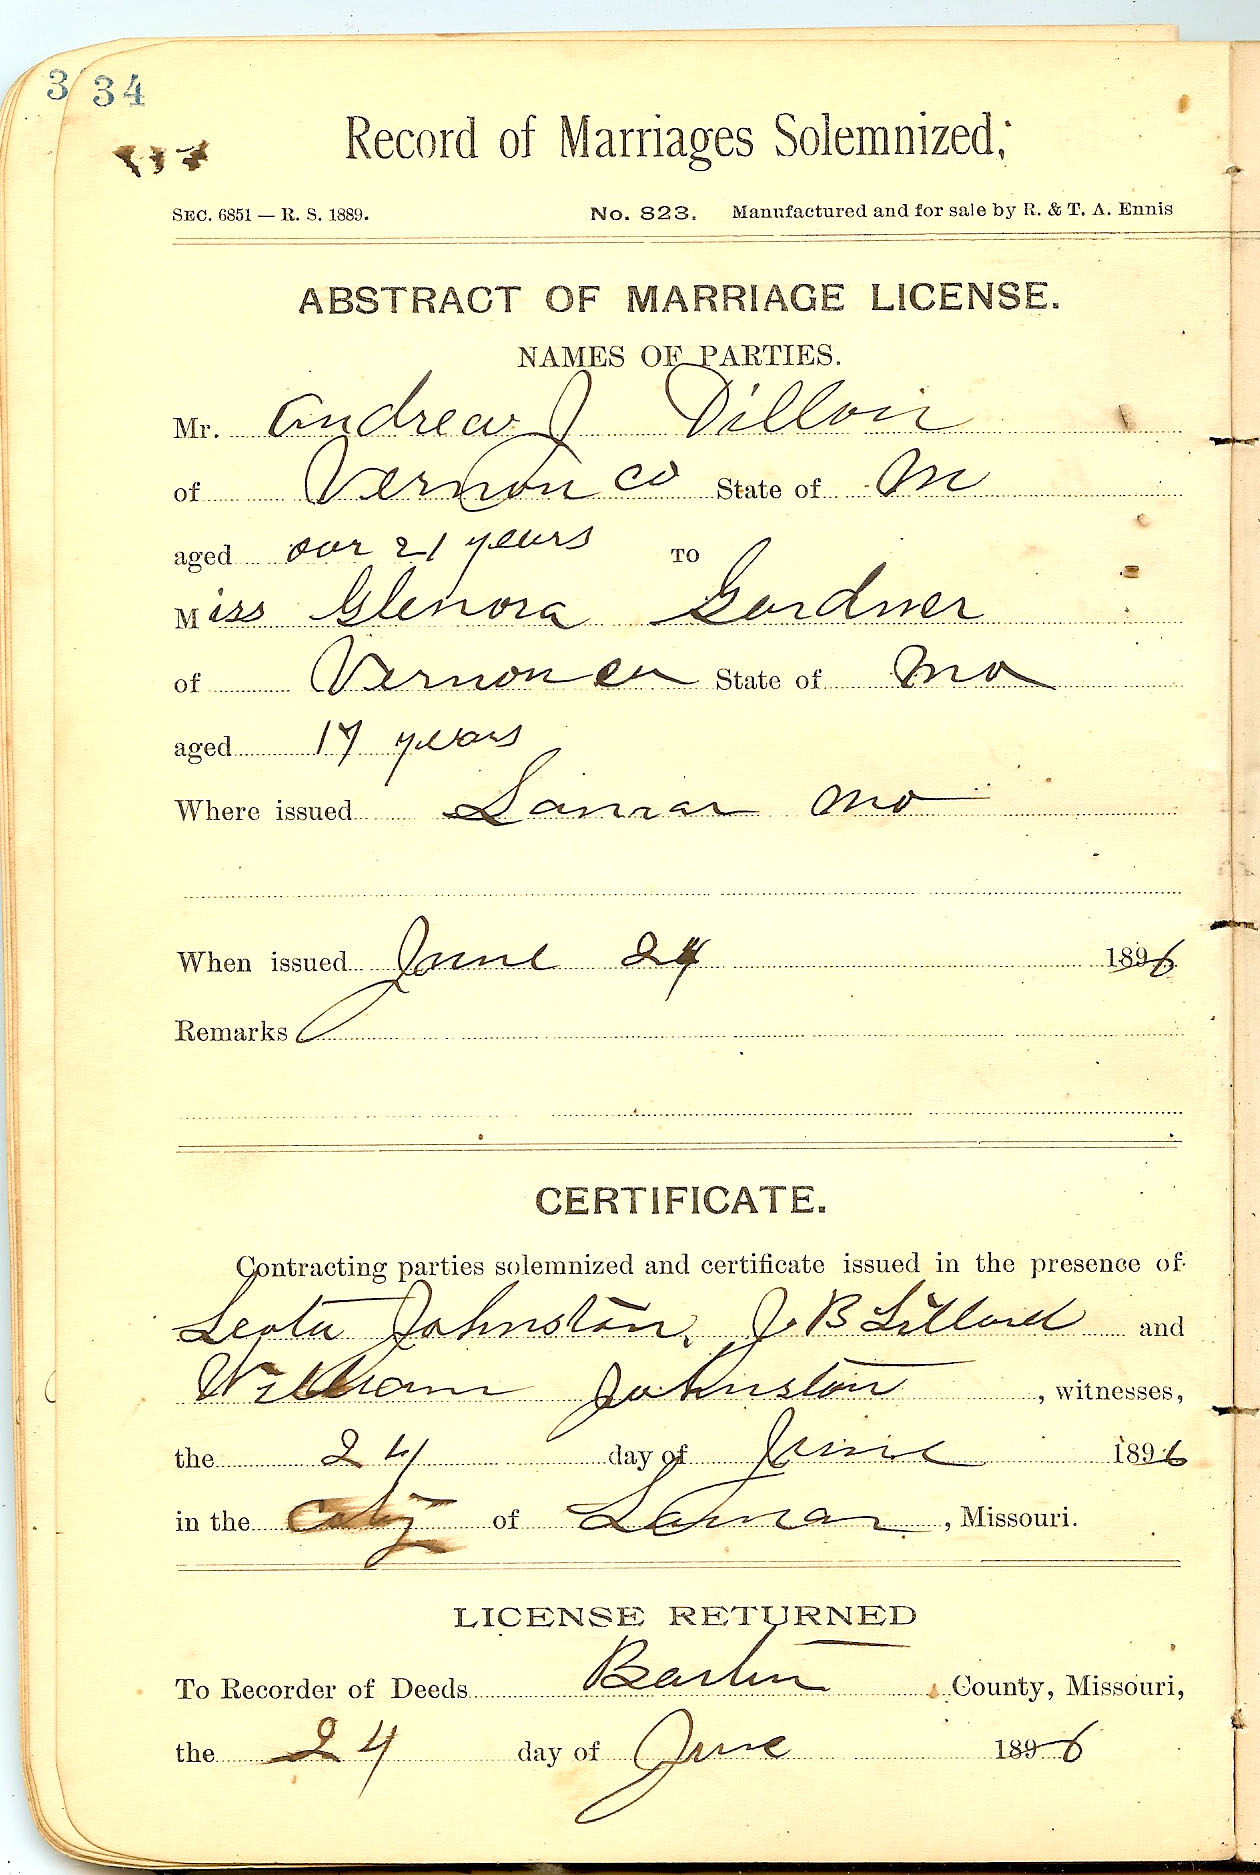 3 34
Record of Marriages Solemnized;
SEC. 6851 — R. S. 1889. No. 823. Manufactured and for sale by R. & T. A. Ennis
ABSTRACT OF MARRIAGE LICENSE.
NAMES OF PARTIES.
Mr. Andrew J Dillon
of Vernon co State of M
aged over 21 years TO
Miss Glenora Gardner
of Vernon co State of Mo
aged 17 years
Where issued Lamar Mo
When issued June 24 1896
Remarks
CERTIFICATE.
Contracting parties solemnized and certificate issued in the presence of
Leota Johnston, J. B Lillard and
William Johnston, witnesses,
the 24 day of June 1896
in the City of Lamar, Missouri.
LICENSE RETURNED
To Recorder of Deeds Barton County, Missouri,
the 24 day of June 1896